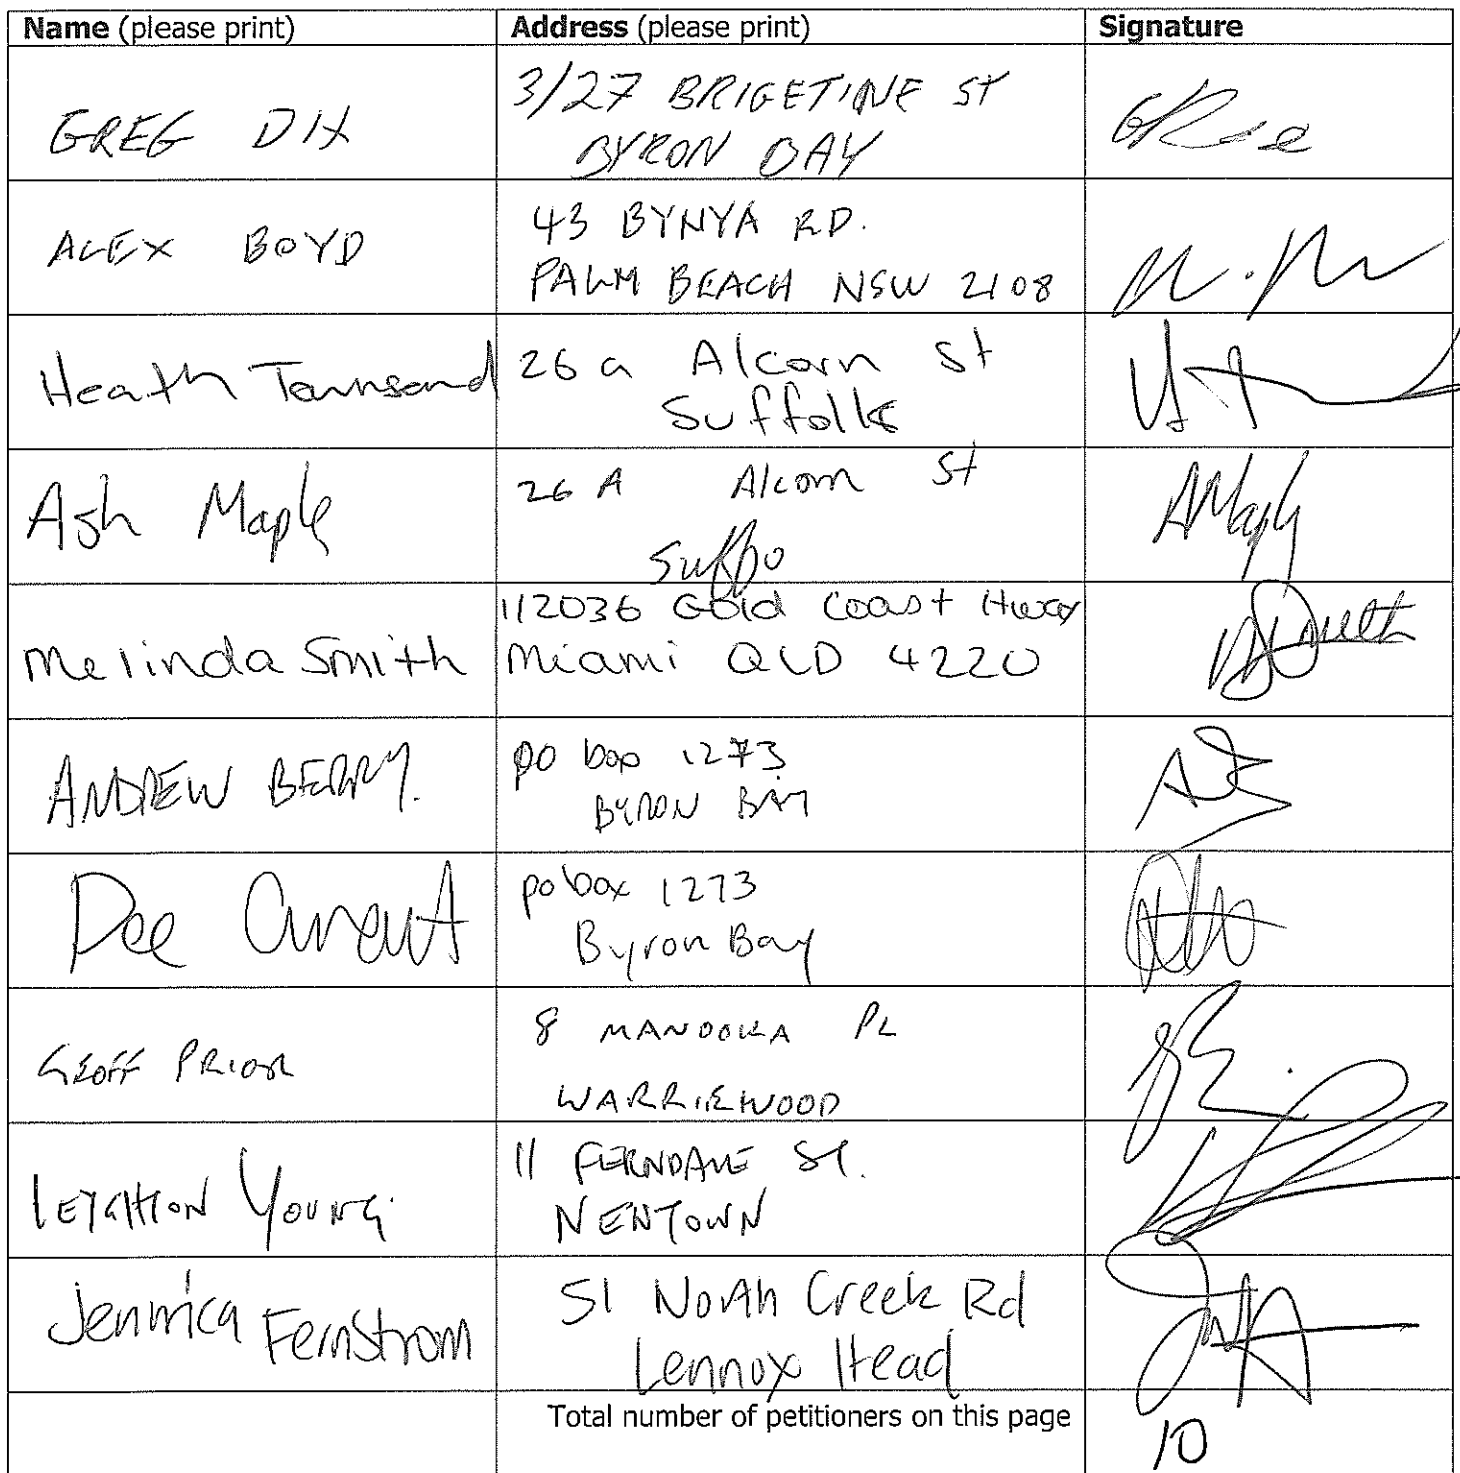 Name (please print) Address (please print) Signature
GREG DIX 3/27 BRIGETINE ST
BYRON BAY
ALEX BOYD 43 BYNYA RD.
PALM BEACH NSW 2108
Heath Townsend 26 a Alcorn St
Suffolk
Ash Maple 26 A Alcorn St
Suffo
AMaple
Melinda Smith 1/2036 Gold Coast Hway
Miami QLD 4220
MSmith
ANDREW BERRY. po box 1273
BYRON BAY
Dee po box 1273
Byron Bay
GEOFF PRIOR 8 MANOOKA PL
WARRIEWOOD
LEIGHTON YOUNG. 11 FERNDALE ST.
NEWTOWN
Jennica Fernstrom 51 North Creek Rd
Lennox Head
Total number of petitioners on this page 10